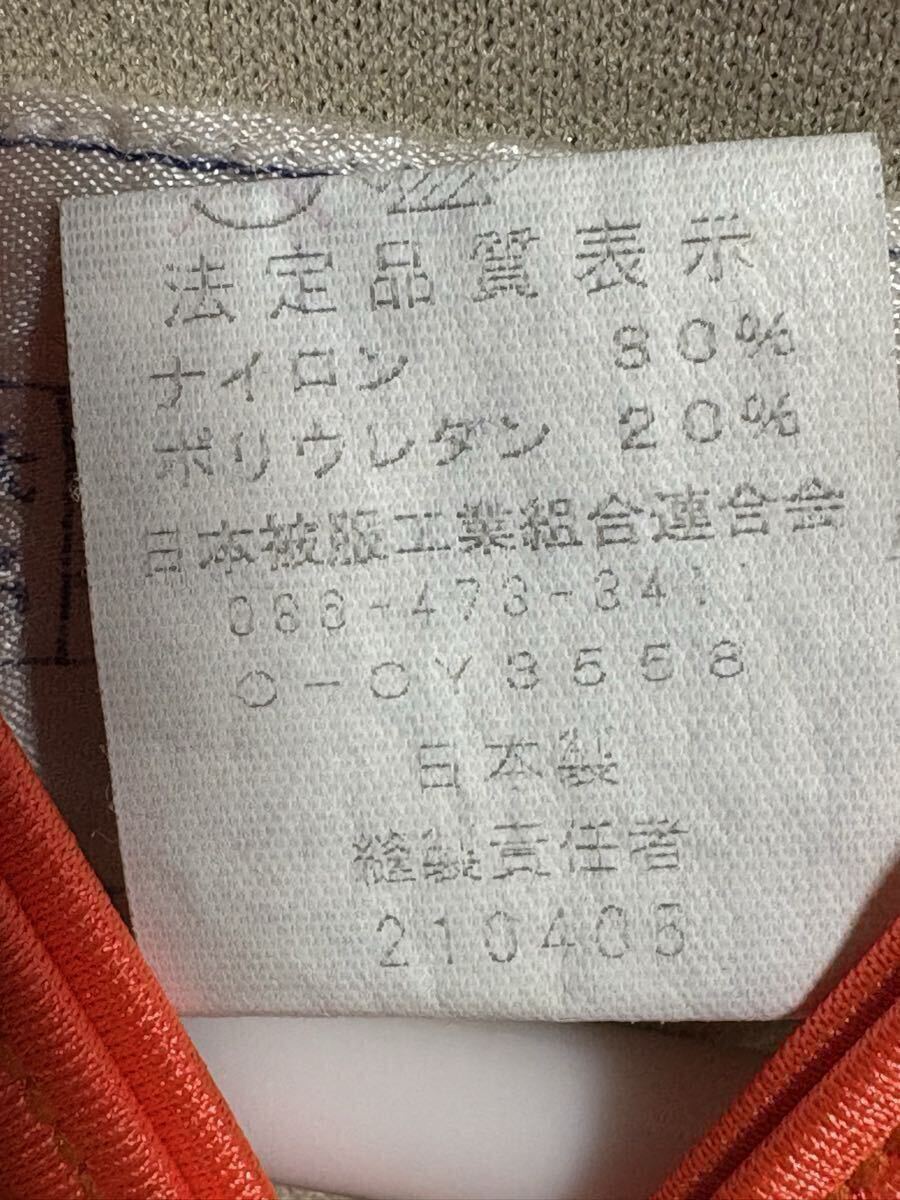 法定品質表示
ナイロン 80%
ポリウレタン 20%
日本被服工業組合連合会
086-473-3411
O-CY3558
日本製
縫製責任者
210405